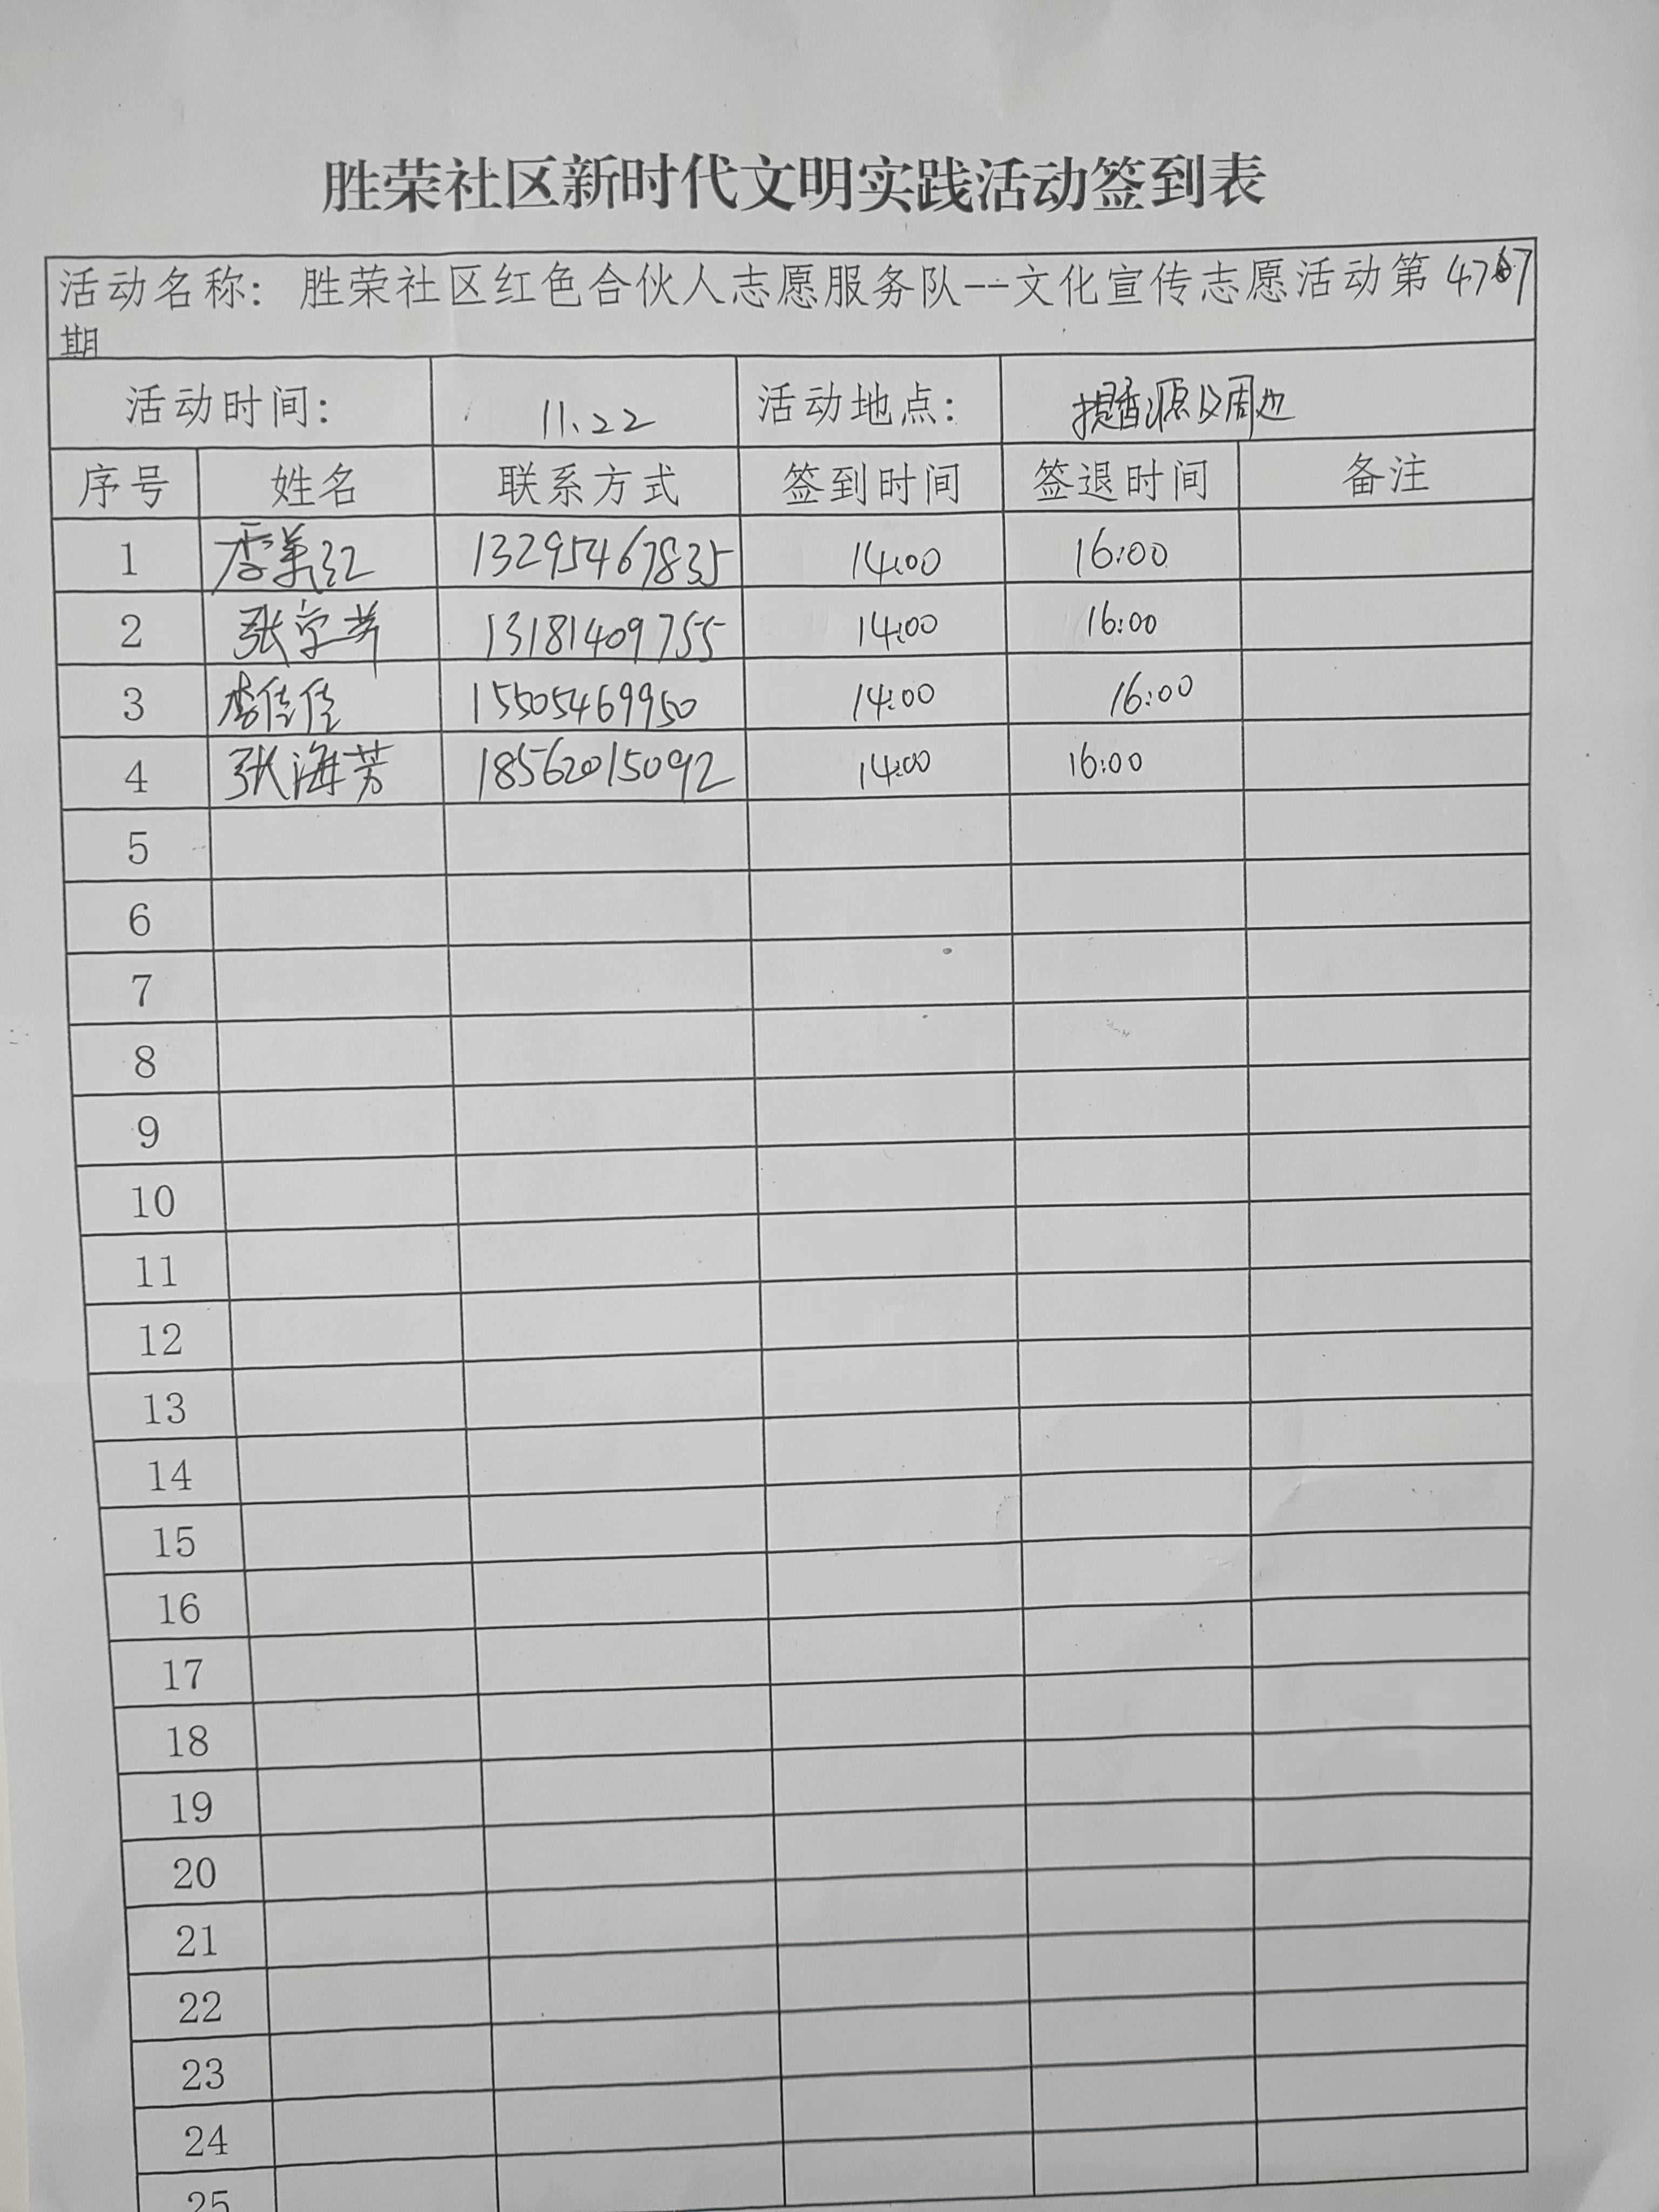 胜荣社区新时代文明实践活动签到表
活动名称: 胜荣社区红色合伙人志愿服务队--文化宣传志愿活动第 47
期
活动时间: 11.22 活动地点: 提香源及周边
序号 姓名 联系方式 签到时间 签退时间 备注
1 李美红 13295467835 14:00 16:00
2 张 13181409755 14:00 16:00
3 李佳佳 15505469950 14:00 16:00
4 张海芳 18562015092 14:00 16:00
5
6
7
8
9
10
11
12
13
14
15
16
17
18
19
20
21
22
23
24
25